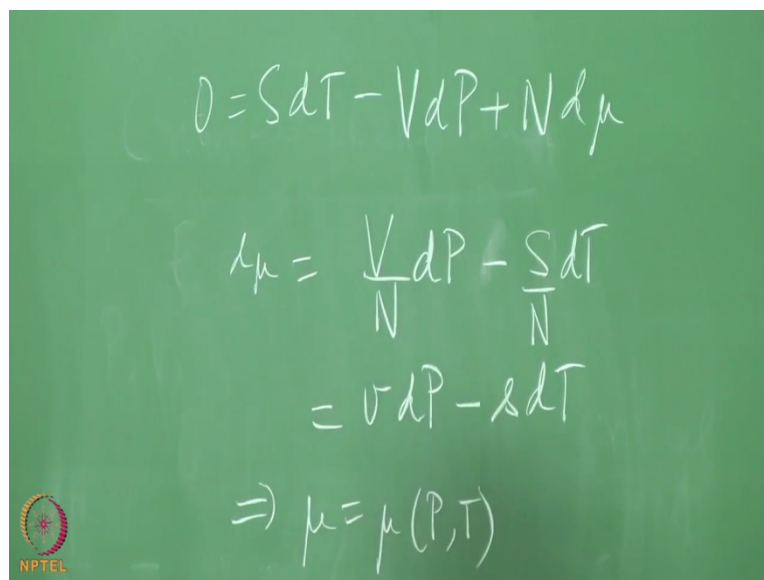 0 = SdT - VdP + Ndμ
dμ = V/N dP - S/N dT
= vdP - sdT
⇒ μ = μ(P,T)
NPTEL